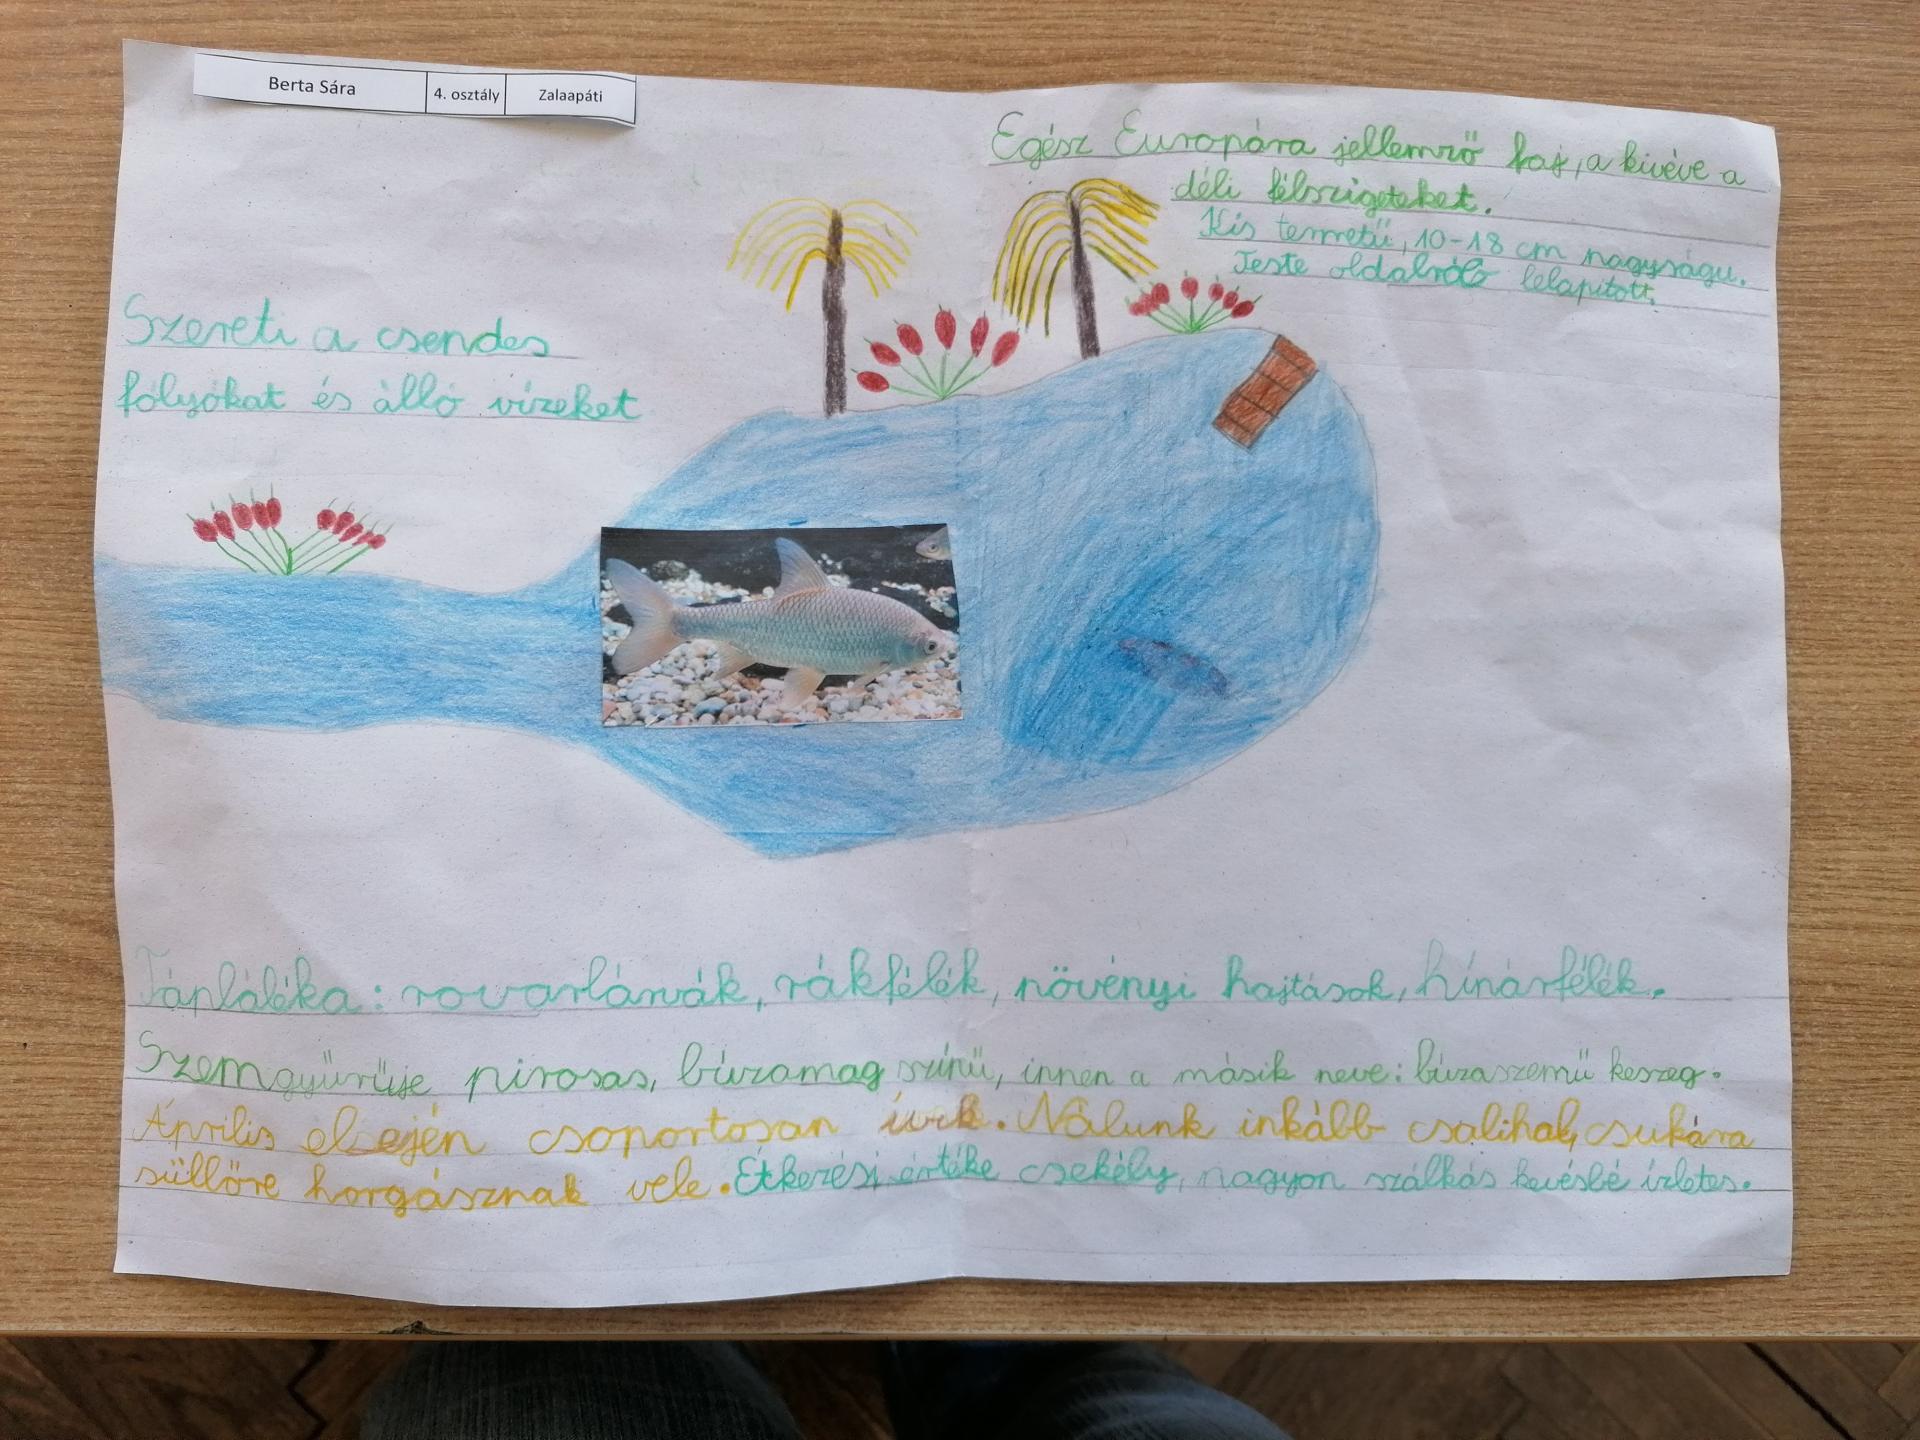 Berta Sára 4. osztály Zalaapáti
Egész Europára jellemző faj, a kivéve a
déli félszigeteket.
Kis termetű, 10-18 cm nagyságu.
Teste oldalról lelapitott.
Szereti a csendes
fólyókat és álló vizeket
Tápláléka: rovarlárvák, rákfélék, növényi hajtások, hínárfélék.
Szemgyűrűje pirosas, búzamag színű, innen a másik neve: búzaszemű keszeg.
Április elsején csoportosan ívik. Nálunk inkább csalihal, csukára
süllőre horgásznak vele. Étkezési értéke csekély, nagyon szálkás kevésbé ízletes.